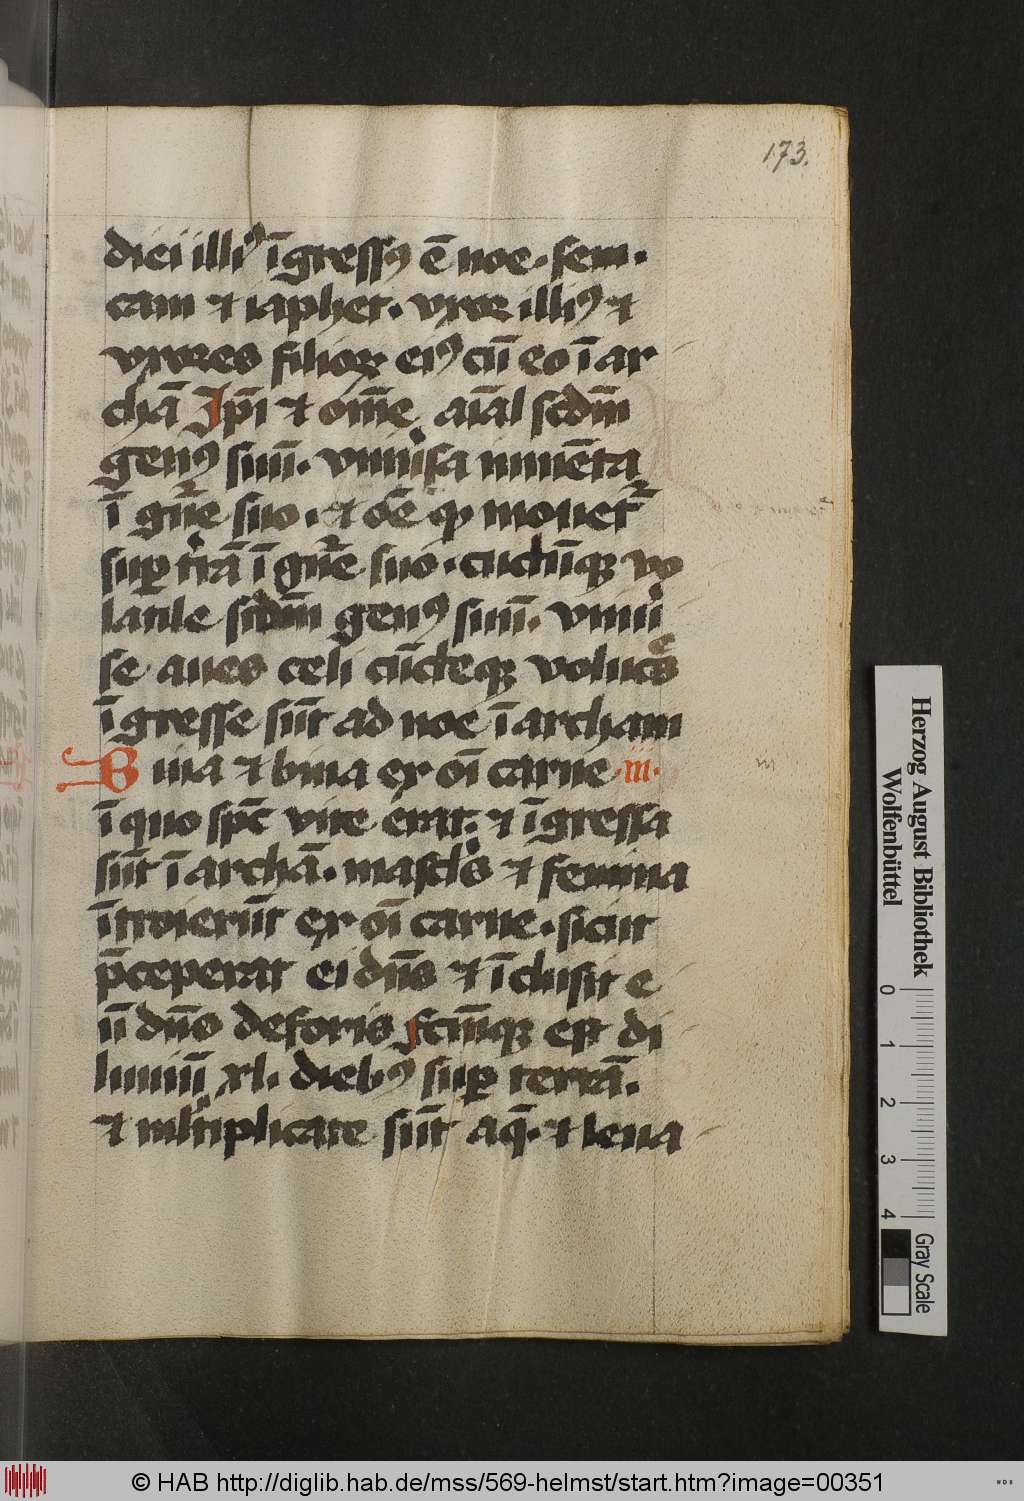 173.
diei illiꝰ īgressꝰ ē noe. sem.
cam et iaphet. vxor illiꝰ et
vxores filioꝝ eiꝰ cū eo ī ar
chā Ip̄i et om̄e aīal scdm̄
genꝰ suū. vniu͛sa iumēta
ī gn̄e suo. et oē qd mouet᷑
suꝑ t͛rā ī gn̄e suo. cūctūqꝫ vo
latile scdm̄ genꝰ suū. vniu͛
se aues celi cūcteqꝫ voluc͛s
īgresse sūt ad noe ī archam
Bina et bina ex oī carne .iii.
ī quo sp̄c vite erat. et īgressa
sūt ī archā. mascl͛s et femina
ītroierūt ex oī carne. sicut
p̄ceperat ei dn̄s et īclusit e
ū dn̄s deforis fctm̄qꝫ est di
luuiū xl. diebꝰ suꝑ terrā.
et mlt͛iplicate sūt aq̄. et leua
Herzog August Bibliothek
Wolfenbüttel
0 1 2 3 4
Gray Scale
© HAB http://diglib.hab.de/mss/569-helmst/start.htm?image=00351